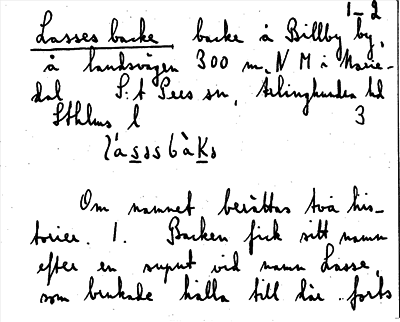 1-2
Lasses backe backe å Billby by,
å landsvägen 300 m. N M i Marie-
dal S:t Pers sn, Ärlinghundra hd
Sthlms l 3

Om namnet berättas två his-
torier. 1. Backen fick sitt namn
efter en suput vid namn Lasse,
som brukade hålla till där. forts